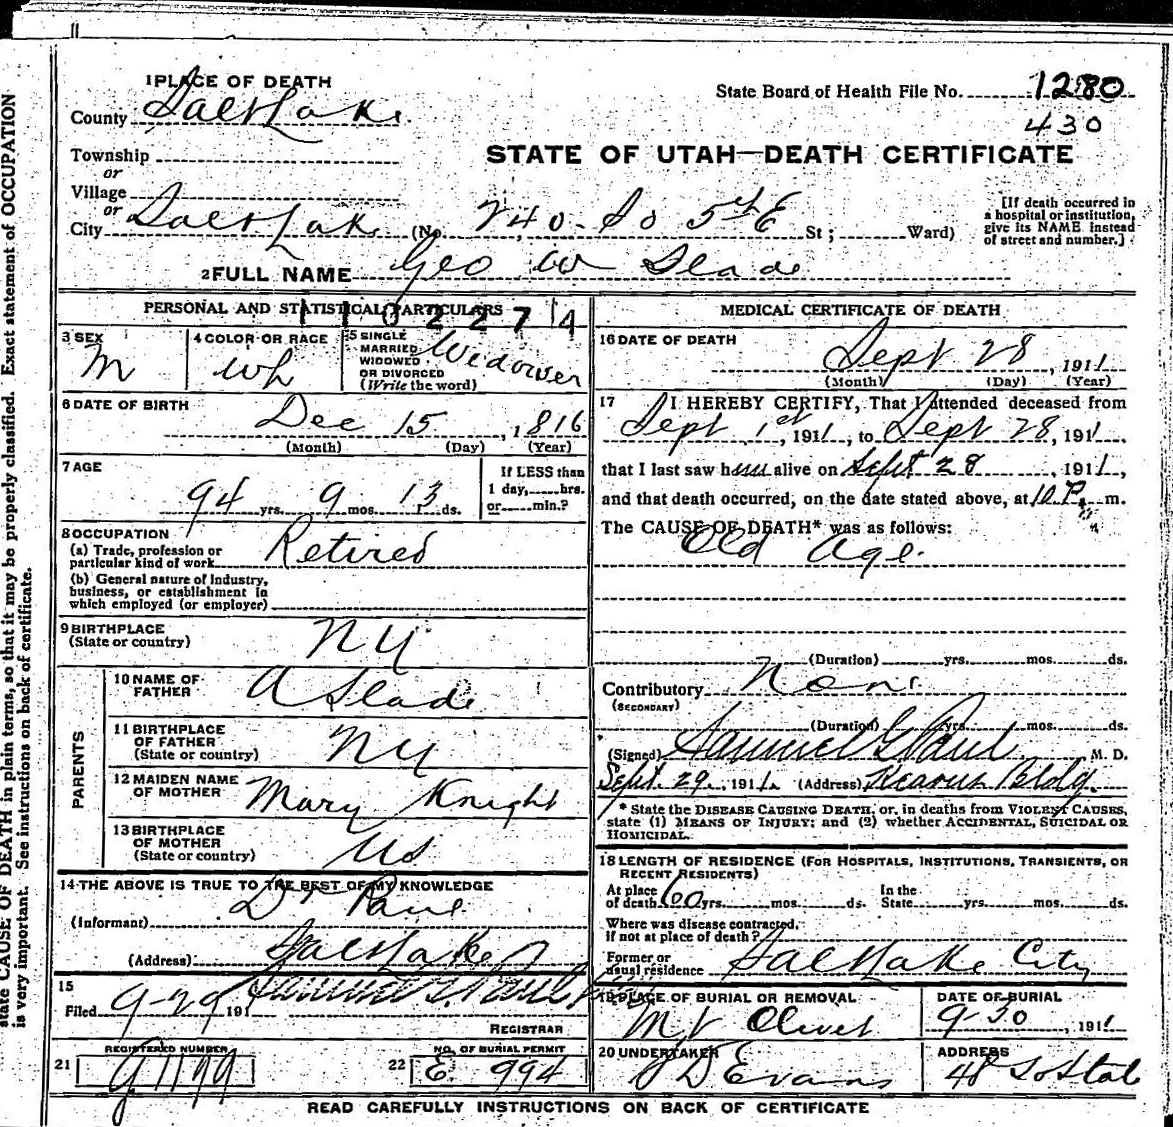 1 PLACE OF DEATH
State Board of Health File No. 1280
County Salt Lake
430
STATE OF UTAH—DEATH CERTIFICATE
Township
or
Village
or
City Salt Lake (No. 240 - So 5th E St; Ward)
[If death occurred in
a hospital or institution,
give its NAME instead
of street and number.]
2 FULL NAME Geo W Slade
PERSONAL AND STATISTICAL PARTICULARS
3 SEX
M
4 COLOR OR RACE
Wh
5 SINGLE
MARRIED
WIDOWED
OR DIVORCED
(Write the word)
Widower
6 DATE OF BIRTH
Dec 15, 1816
(Month) (Day) (Year)
7 AGE
94 yrs. 9 mos. 13 ds.
If LESS than
1 day, hrs.
or min.?
8 OCCUPATION
(a) Trade, profession or
particular kind of work Retired
(b) General nature of industry,
business, or establishment in
which employed (or employer)
9 BIRTHPLACE
(State or country)
NY
PARENTS
10 NAME OF
FATHER
A Slade
11 BIRTHPLACE
OF FATHER
(State or country)
NY
12 MAIDEN NAME
OF MOTHER
Mary Knight
13 BIRTHPLACE
OF MOTHER
(State or country)
US
14 THE ABOVE IS TRUE TO THE BEST OF MY KNOWLEDGE
(Informant) Dr Paul
(Address) Salt Lake
15
Filed 9-29 191
REGISTRAR
21
REGISTERED NUMBER
G1199
22
NO. OF BURIAL PERMIT
E 994
MEDICAL CERTIFICATE OF DEATH
16 DATE OF DEATH
Sept 28, 1911
(Month) (Day) (Year)
17 I HEREBY CERTIFY, That I attended deceased from
Sept 1st, 1911, to Sept 28, 1911
that I last saw him alive on Sept 28, 1911,
and that death occurred, on the date stated above, at 10 P. m.
The CAUSE OF DEATH* was as follows:
Old Age
(Duration) yrs. mos. ds.
Contributory None
(SECONDARY)
(Duration) yrs. mos. ds.
(Signed) Samuel G. Paul M. D.
Sept. 29, 1911. (Address) Kearns Bldg.
* State the DISEASE CAUSING DEATH, or, in deaths from VIOLENT CAUSES,
state (1) MEANS OF INJURY; and (2) whether ACCIDENTAL, SUICIDAL OR
HOMICIDAL.
18 LENGTH OF RESIDENCE (FOR HOSPITALS, INSTITUTIONS, TRANSIENTS, OR
RECENT RESIDENTS)
At place
of death 60 yrs. mos. ds.
In the
State yrs. mos. ds.
Where was disease contracted,
if not at place of death?
Former or
usual residence Salt Lake City
19 PLACE OF BURIAL OR REMOVAL
Mt Olivet
DATE OF BURIAL
9-30, 1911
20 UNDERTAKER
Evans
ADDRESS
48 So State
READ CAREFULLY INSTRUCTIONS ON BACK OF CERTIFICATE
state CAUSE OF DEATH in plain terms, so that it may be properly classified. Exact statement of OCCUPATION
is very important. See instructions on back of certificate.